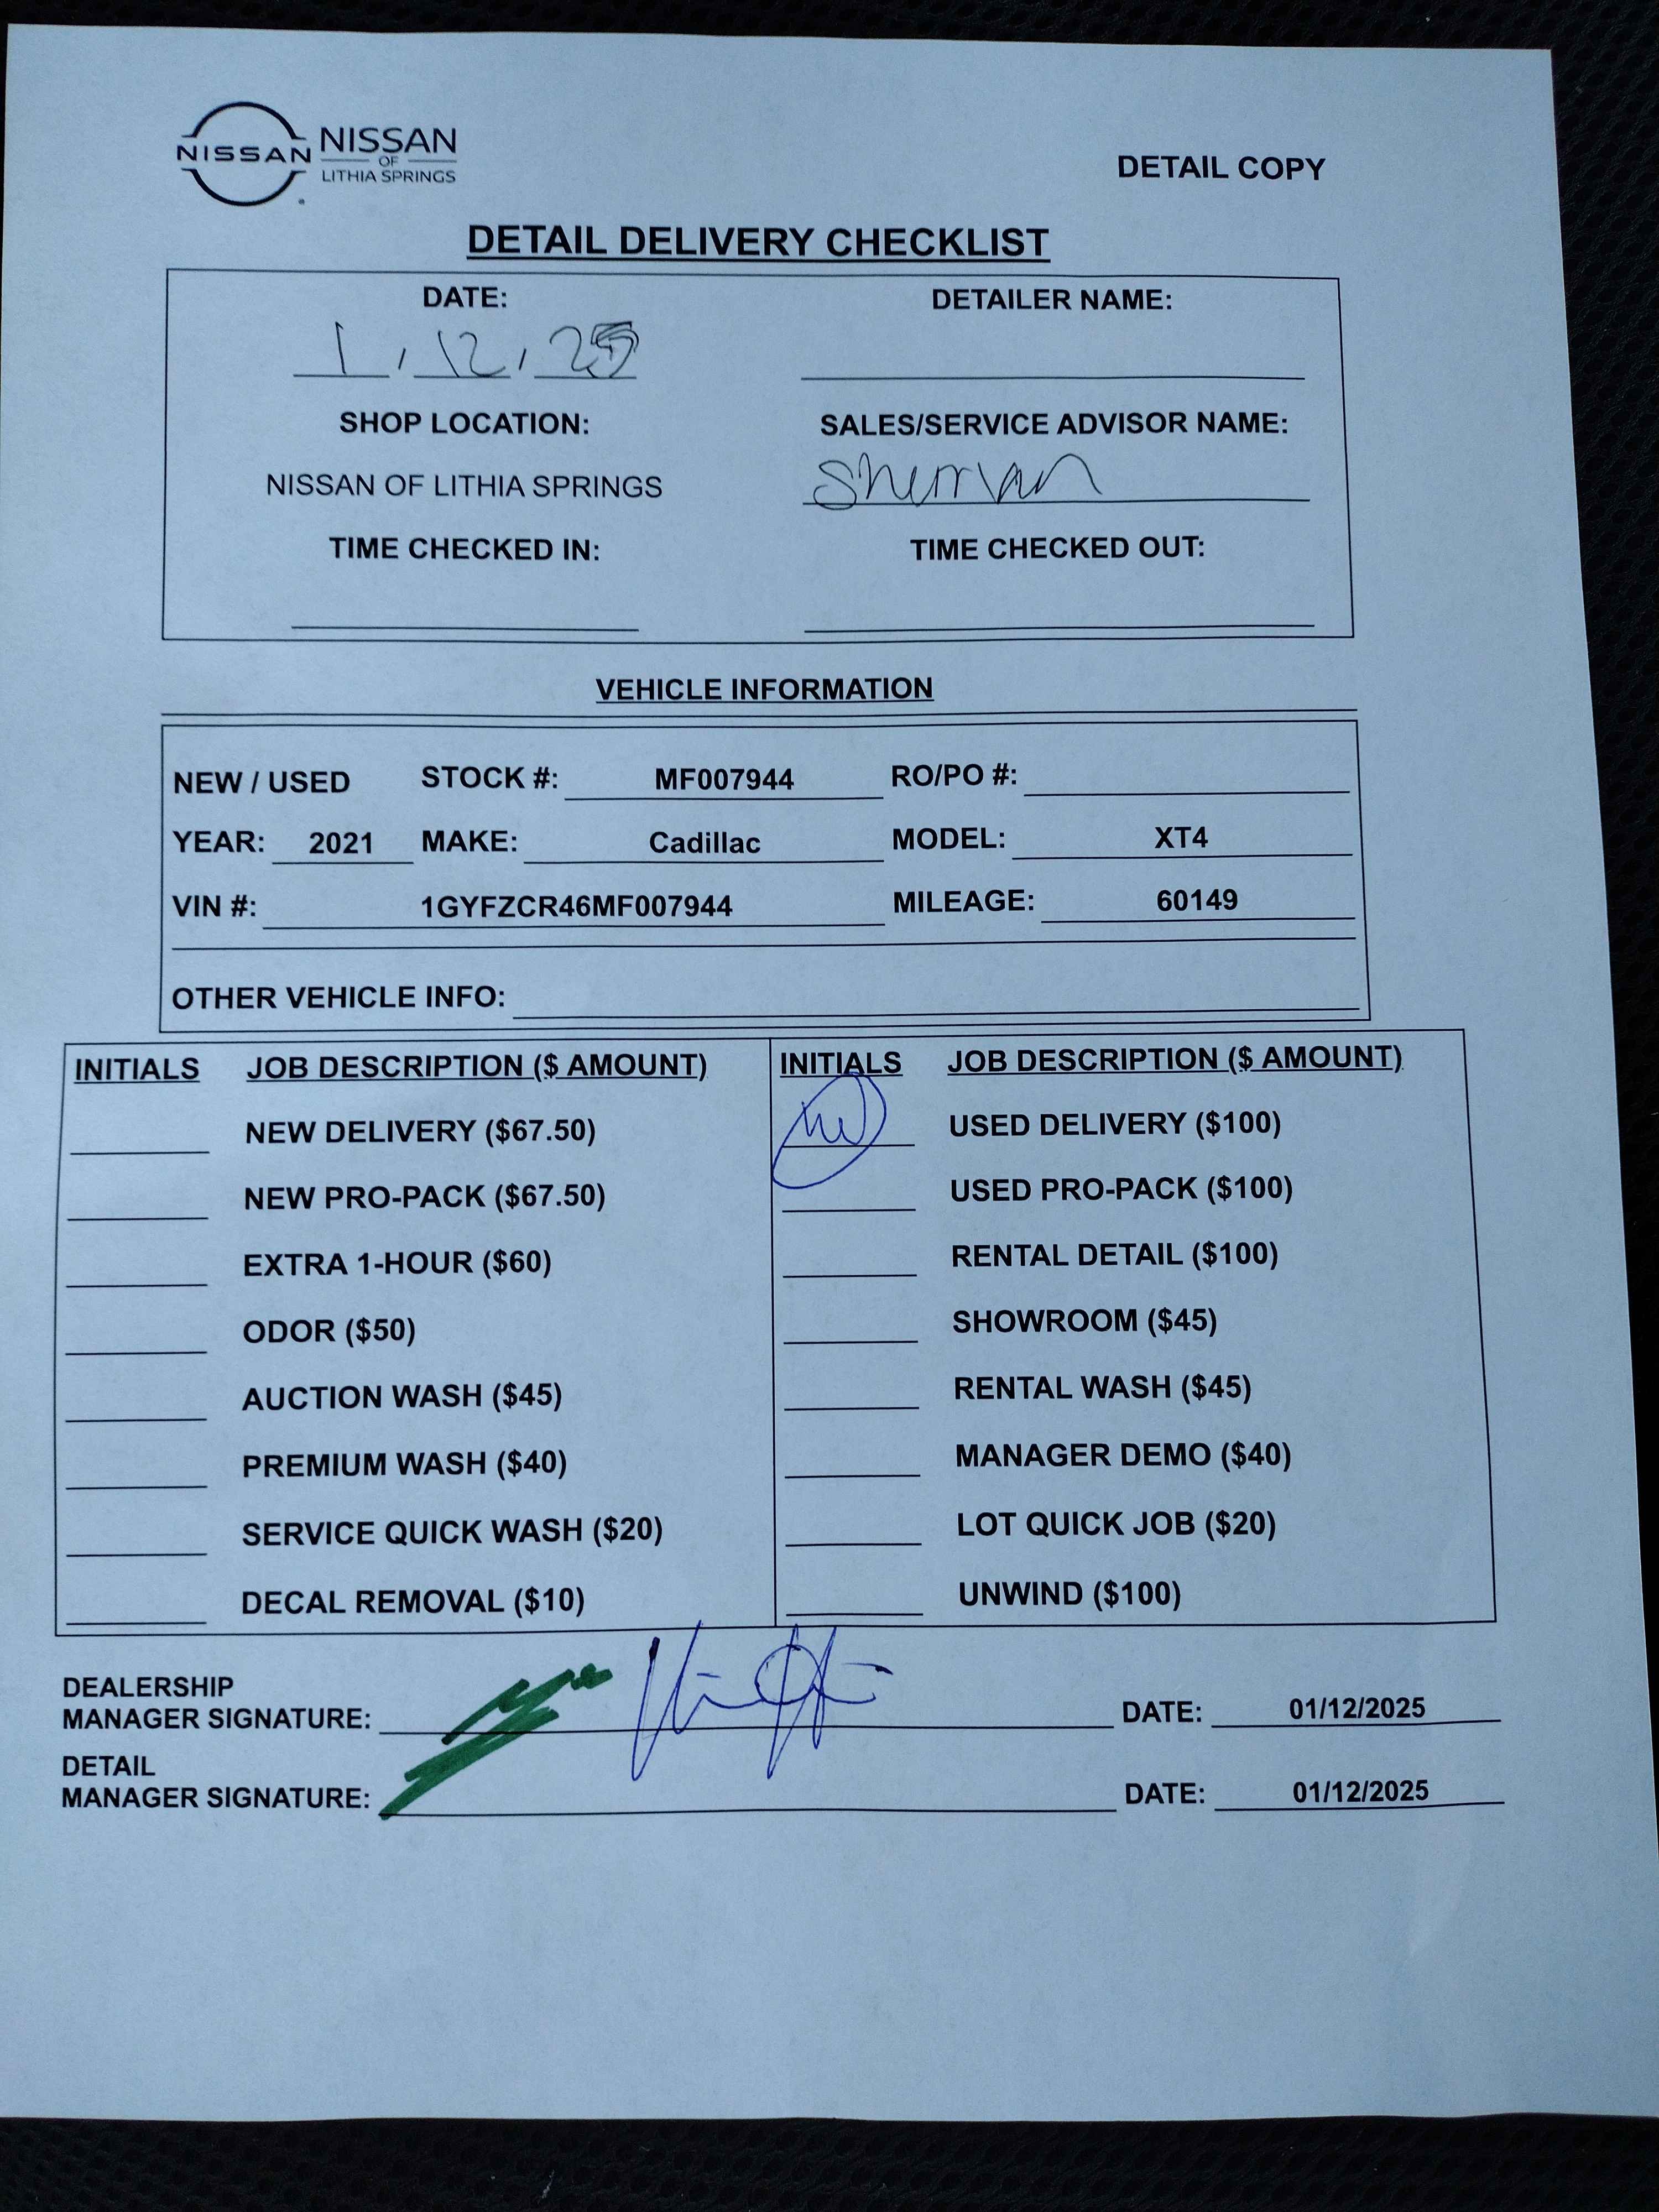 NISSAN
NISSAN
OF
LITHIA SPRINGS
DETAIL COPY
DETAIL DELIVERY CHECKLIST
DATE: DETAILER NAME:
1, 12, 25
SHOP LOCATION: SALES/SERVICE ADVISOR NAME:
NISSAN OF LITHIA SPRINGS Sherman
TIME CHECKED IN: TIME CHECKED OUT:
VEHICLE INFORMATION
NEW / USED STOCK #: MF007944 RO/PO #:
YEAR: 2021 MAKE: Cadillac MODEL: XT4
VIN #: 1GYFZCR46MF007944 MILEAGE: 60149
OTHER VEHICLE INFO:
INITIALS JOB DESCRIPTION ($ AMOUNT) INITIALS JOB DESCRIPTION ($ AMOUNT)
NEW DELIVERY ($67.50) USED DELIVERY ($100)
NEW PRO-PACK ($67.50) USED PRO-PACK ($100)
EXTRA 1-HOUR ($60) RENTAL DETAIL ($100)
ODOR ($50) SHOWROOM ($45)
AUCTION WASH ($45) RENTAL WASH ($45)
PREMIUM WASH ($40) MANAGER DEMO ($40)
SERVICE QUICK WASH ($20) LOT QUICK JOB ($20)
DECAL REMOVAL ($10) UNWIND ($100)
DEALERSHIP
MANAGER SIGNATURE: DATE: 01/12/2025
DETAIL
MANAGER SIGNATURE: DATE: 01/12/2025